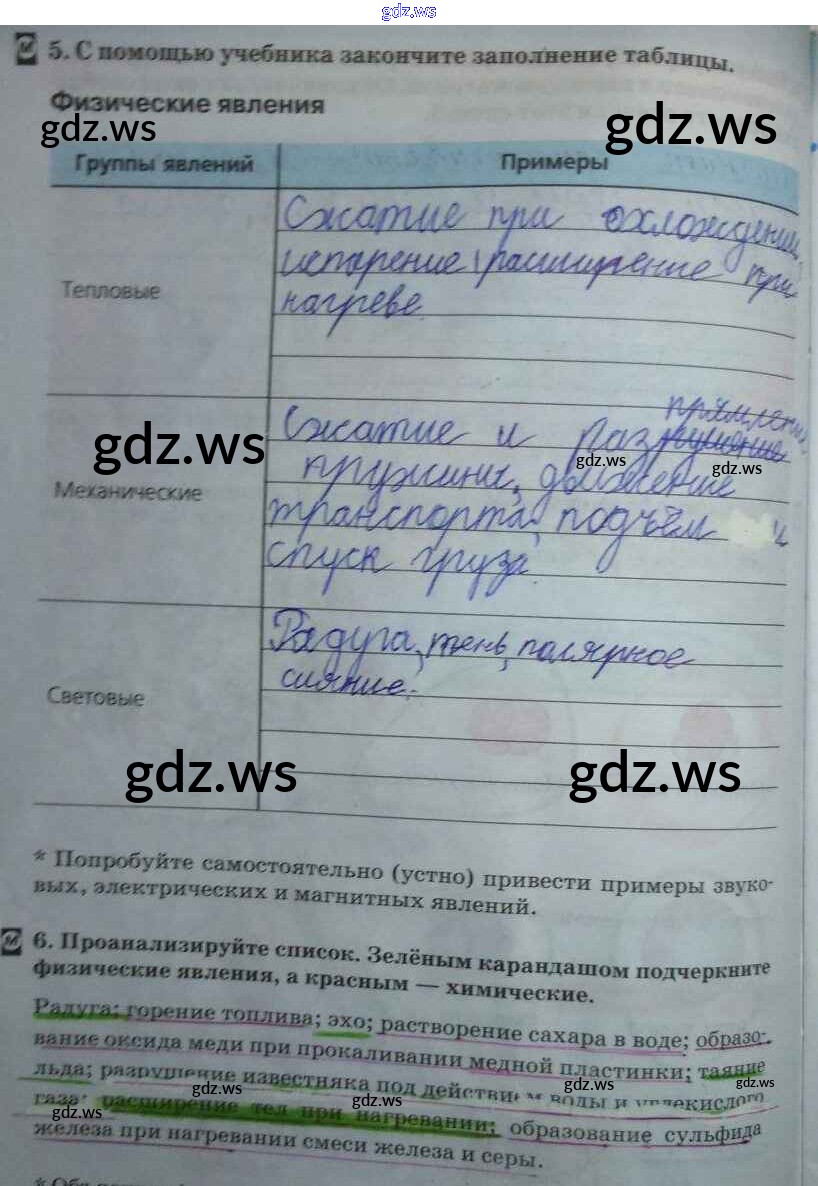 gdz.ws
5. С помощью учебника закончите заполнение таблицы.
Физические явления
gdz.ws
gdz.ws
Группы явлений
Примеры
Тепловые
Сжатие при охлождении,
испарение, расширение при
нагреве.
gdz.ws
Механические
прямление
Сжатие и раз
gdz.ws
gdz.ws
пружины, движение
транспорта, подъём и
спуск груза.
Световые
Радуга, тень, полярное
сияние.
gdz.ws
gdz.ws
* Попробуйте самостоятельно (устно) привести примеры звуко-
вых, электрических и магнитных явлений.
6. Проанализируйте список. Зелёным карандашом подчеркните
физические явления, а красным — химические.
Радуга; горение топлива; эхо; растворение сахара в воде; образо-
вание оксида меди при прокаливании медной пластинки; таяние
льда; разрушение известняка под действием воды и углекислого
газа; расширение тел при нагревании; образование сульфида
железа при нагревании смеси железа и серы.
gdz.ws
gdz.ws
gdz.ws
gdz.ws
gdz.ws